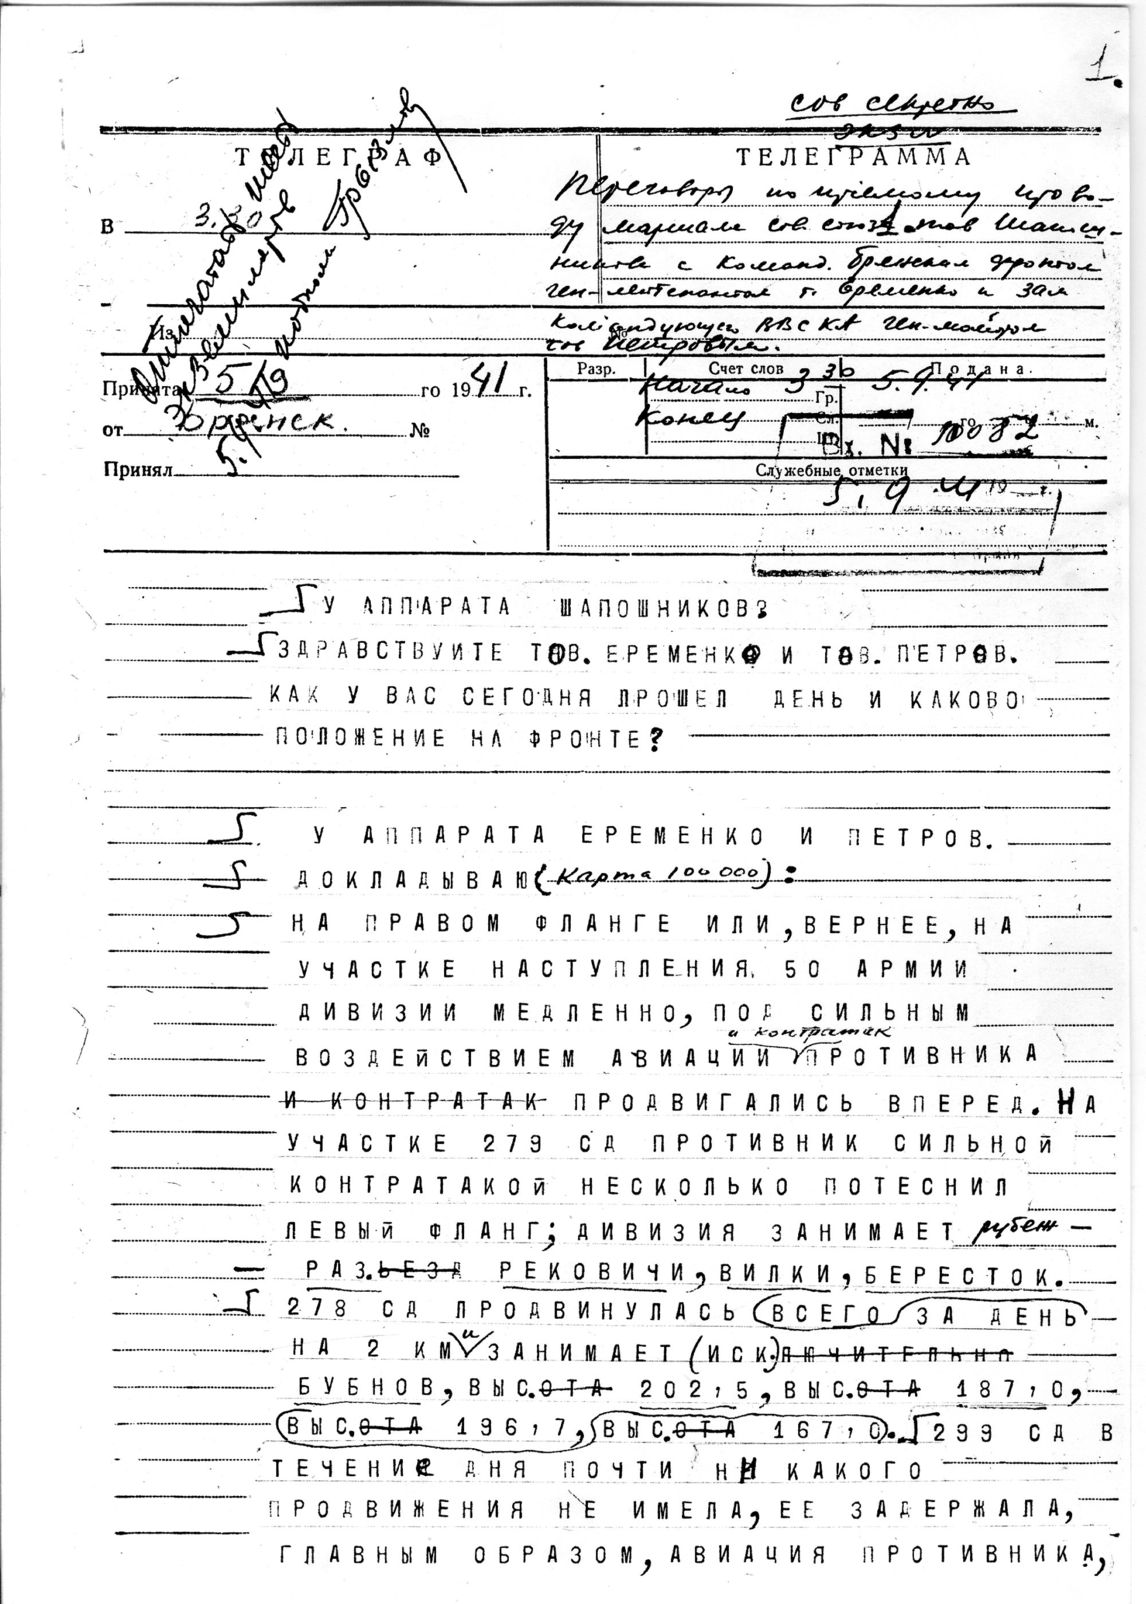 1.
сов секретно
экз №
ТЕЛЕГРАФ
ТЕЛЕГРАММА
Переговоры по прямому прово-
В 3.
ду маршала сов. союза тов Шапош-
никова с Команд. брянским фронтом
ген-лейтенантом т. Еременко и зам
Из
Командующего ВВС КА ген-майором
тов Петровым.
Отпечатано
5.9.41
Принята 5 19 го 1941 г.
от Брянск. №
Принял
Разр.
Счет слов
Подана.
Начало 3 30 5.9.41
Гр.
Конец
Сл.
го
м.
Вх. № 10082
Служебные отметки
5.9.41 19 г.
У АППАРАТА ШАПОШНИКОВ?
ЗДРАВСТВУИТЕ ТОВ. ЕРЕМЕНКО И ТОВ. ПЕТРОВ.
КАК У ВАС СЕГОДНЯ ПРОШЕЛ ДЕНЬ И КАКОВО
ПОЛОЖЕНИЕ НА ФРОНТЕ?
У АППАРАТА ЕРЕМЕНКО И ПЕТРОВ.
ДОКЛАДЫВАЮ (Карта 100 000):
НА ПРАВОМ ФЛАНГЕ ИЛИ, ВЕРНЕЕ, НА
УЧАСТКЕ НАСТУПЛЕНИЯ 50 АРМИИ
ДИВИЗИИ МЕДЛЕННО, ПОД СИЛЬНЫМ
и контратак
ВОЗДЕЙСТВИЕМ АВИАЦИИ ПРОТИВНИКА
И КОНТРАТАК ПРОДВИГАЛИСЬ ВПЕРЕД. НА
УЧАСТКЕ 279 СД ПРОТИВНИК СИЛЬНОЙ
КОНТРАТАКОЙ НЕСКОЛЬКО ПОТЕСНИЛ
ЛЕВЫЙ ФЛАНГ; ДИВИЗИЯ ЗАНИМАЕТ рубеж —
РАЗ.ЬЕЗД РЕКОВИЧИ, ВИЛКИ, БЕРЕСТОК.
278 СД ПРОДВИНУЛАСЬ ВСЕГО ЗА ДЕНЬ
НА 2 КМ и ЗАНИМАЕТ (ИСК.)ЛЮЧИТЕЛЬНО
БУБНОВ, ВЫС.ОТА 202,5, ВЫС.ОТА 187,0,
ВЫС.ОТА 196,7, ВЫС.ОТА 167,0. 299 СД В
ТЕЧЕНИЕ ДНЯ ПОЧТИ НИ КАКОГО
ПРОДВИЖЕНИЯ НЕ ИМЕЛА, ЕЕ ЗАДЕРЖАЛА,
ГЛАВНЫМ ОБРАЗОМ, АВИАЦИЯ ПРОТИВНИКА,